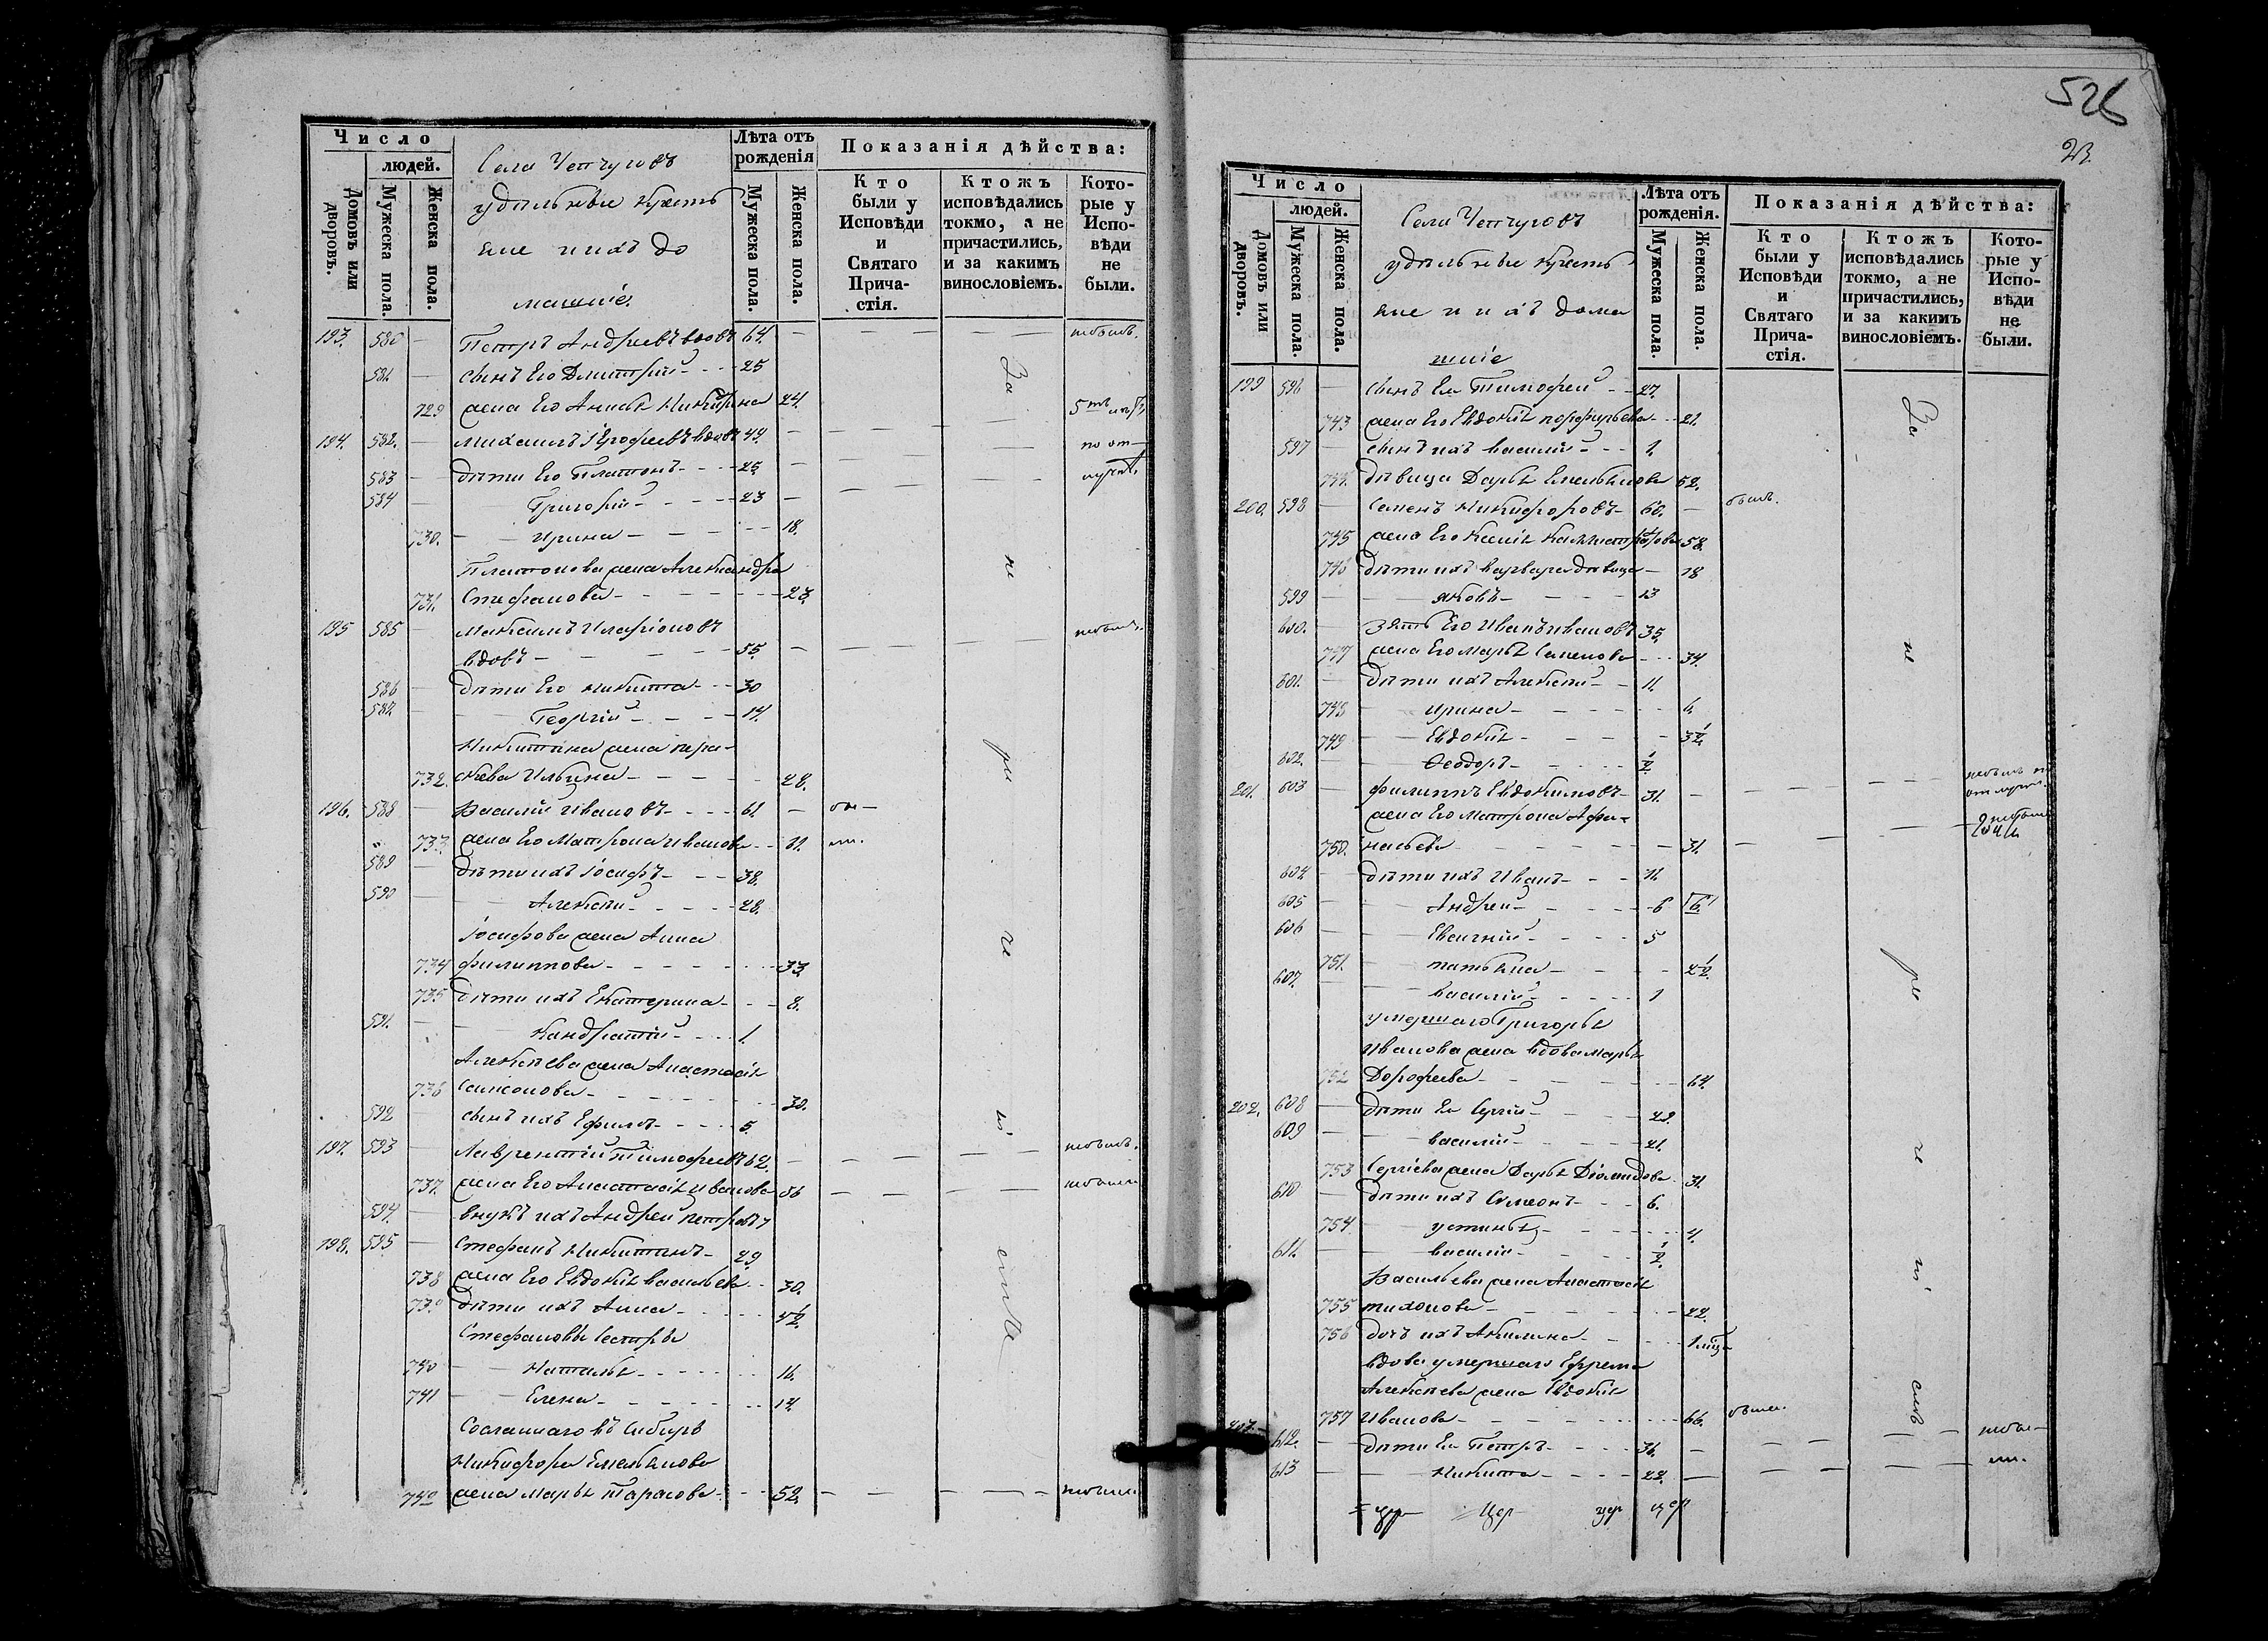 Число
людей.
Домовъ или дворовъ.
Мужеска пола.
Женска пола.
Села Чепчуговъ
удѣльные кресть
яне и ихъ до
машніе
Лѣта отъ рожденія
Мужеска пола.
Женска пола.
Показанія дѣйства:
Кто были у Исповѣди и Святаго Прича-стія.
Ктожъ исповѣдались токмо, а не причастились, и за какимъ винословіемъ.
Кото-рые у Испо-вѣди не были.
193. 580 — Петръ Андреевъ вдовъ 64. — — — небылъ.
581. — сынъ Его Дмитрій 25
729 жена Его Анисья Никифорова 24.
194. 582. — Михаилъ Ерофеевъ вдовъ 49. — по от—
583 — дѣти Его Платонъ 25
584 — Григорій 23
730. — Ирина 18.
Платонова жена Александра
731. Стефанова 23.
195 585 — Максимъ Иларіоновъ небылъ.
вдовъ 55.
586 — дѣти Его Никита 30
587. Георгій 14.
Никитина жена пара-
732. скева Ильина 28.
196. 588 — Василій Ивановъ 61 — бы—
733. жена Его Матрона Иванова 61. ли.
589 — дѣти ихъ Іосифъ 38.
590 — Алексѣй 28.
Іосифова жена Анна
734 Филиппова 33
735 дѣти ихъ Екатерина 8.
591. — Кандратій 1.
Алексѣева жена Анастасія
736 Самсонова 30.
592 сынъ ихъ Ефимъ 5.
197. 593 — Лаврентій Тимофеевъ 62. — небылъ.
737. жена Его Анастасія Иванова 56 — небыла
594. — внукъ ихъ Андрей Петровъ 7
198. 595 — Стефанъ Никитинъ 29
738 жена Его Евдокія Васильева 30.
739 дѣти ихъ Анна
Стефановы сестры
740 — Наталья 16.
741 — Елена 14.
Сосланнаго въ Сибирь
Никифора Емельянова
742 жена Марья Тарасова 52. — небыла
За не ри че ні емъ
526
23.
Число
людей.
Домовъ или дворовъ.
Мужеска пола.
Женска пола.
Села Чепчуговъ
удѣльные кресть
яне и ихъ дома
шніе
Лѣта отъ рожденія.
Мужеска пола.
Женска пола.
Показанія дѣйства:
Кто были у Исповѣди и Святаго Прича-стія.
Ктожъ исповѣдались токмо, а не причастились, и за какимъ винословіемъ.
Кото-рые у Испо-вѣди не были.
199 596 — сынъ Ея Тимофей 27.
743 жена Его Евдокія Порфирьева 21.
597 — сынъ ихъ Василій 1.
744. дѣвица Дарья Емельянова 52.
200. 598 — Семенъ Никифоровъ 60. — былъ.
745 жена Его Ксенія Каллистратова 58.
746 дѣти ихъ Варвара дѣвица 18
599 — Яковъ 13
600. — Зять Его Иванъ Ивановъ 35.
747 жена Его Марья Семенова 34.
601. — дѣти ихъ Алексѣй 11.
748 — Ирина 6.
749 — Евдокія 3 1/2.
602. — Ѳеодоръ 1/2.
201. 603 — Филиппъ Евдокимовъ 31. — небылъ по отлуч.
жена Его Матрона Афа-
750. насьева 31.
604 — дѣти ихъ Иванъ 11.
605 — Андрей 6
606 — Евгеній 5
751. — Татьяна 2 1/2.
607. — Василій 1
умершаго Григорья
Иванова жена вдова Марья
752 Дорофеева 64.
202. 608 — дѣти Ея Сергій 22.
609 — Василій 21.
753 Сергіева жена Дарья Діомидова 31.
610 — дѣти ихъ Симеонъ 6.
754 — Устинья 4.
611. — Василій 1/2.
Васильева жена Анастасія
755 Тихонова 22.
756 дочь ихъ Акилина 1 мѣся
вдова умершаго Ефрема
Алексѣева жена Евдокія
757 Иванова 66. была.
203. 612. — дѣти Ея Петръ 31. — небы—
613 — Никита 22. — ли.
За не ри че ні емъ